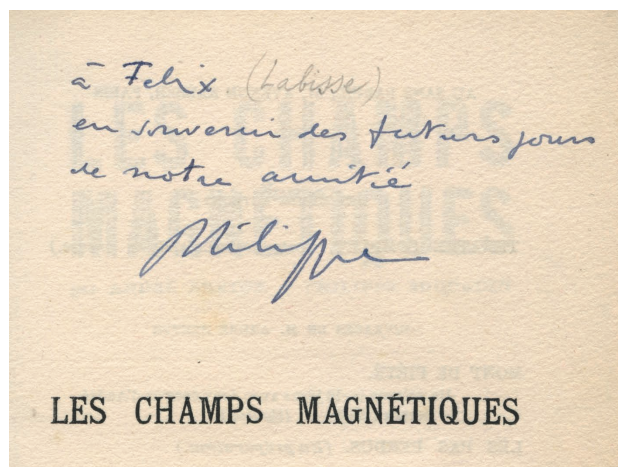 à Felix (Labisse)
en souvenir des futurs jours
de notre amitié
Philippe
LES CHAMPS MAGNÉTIQUES